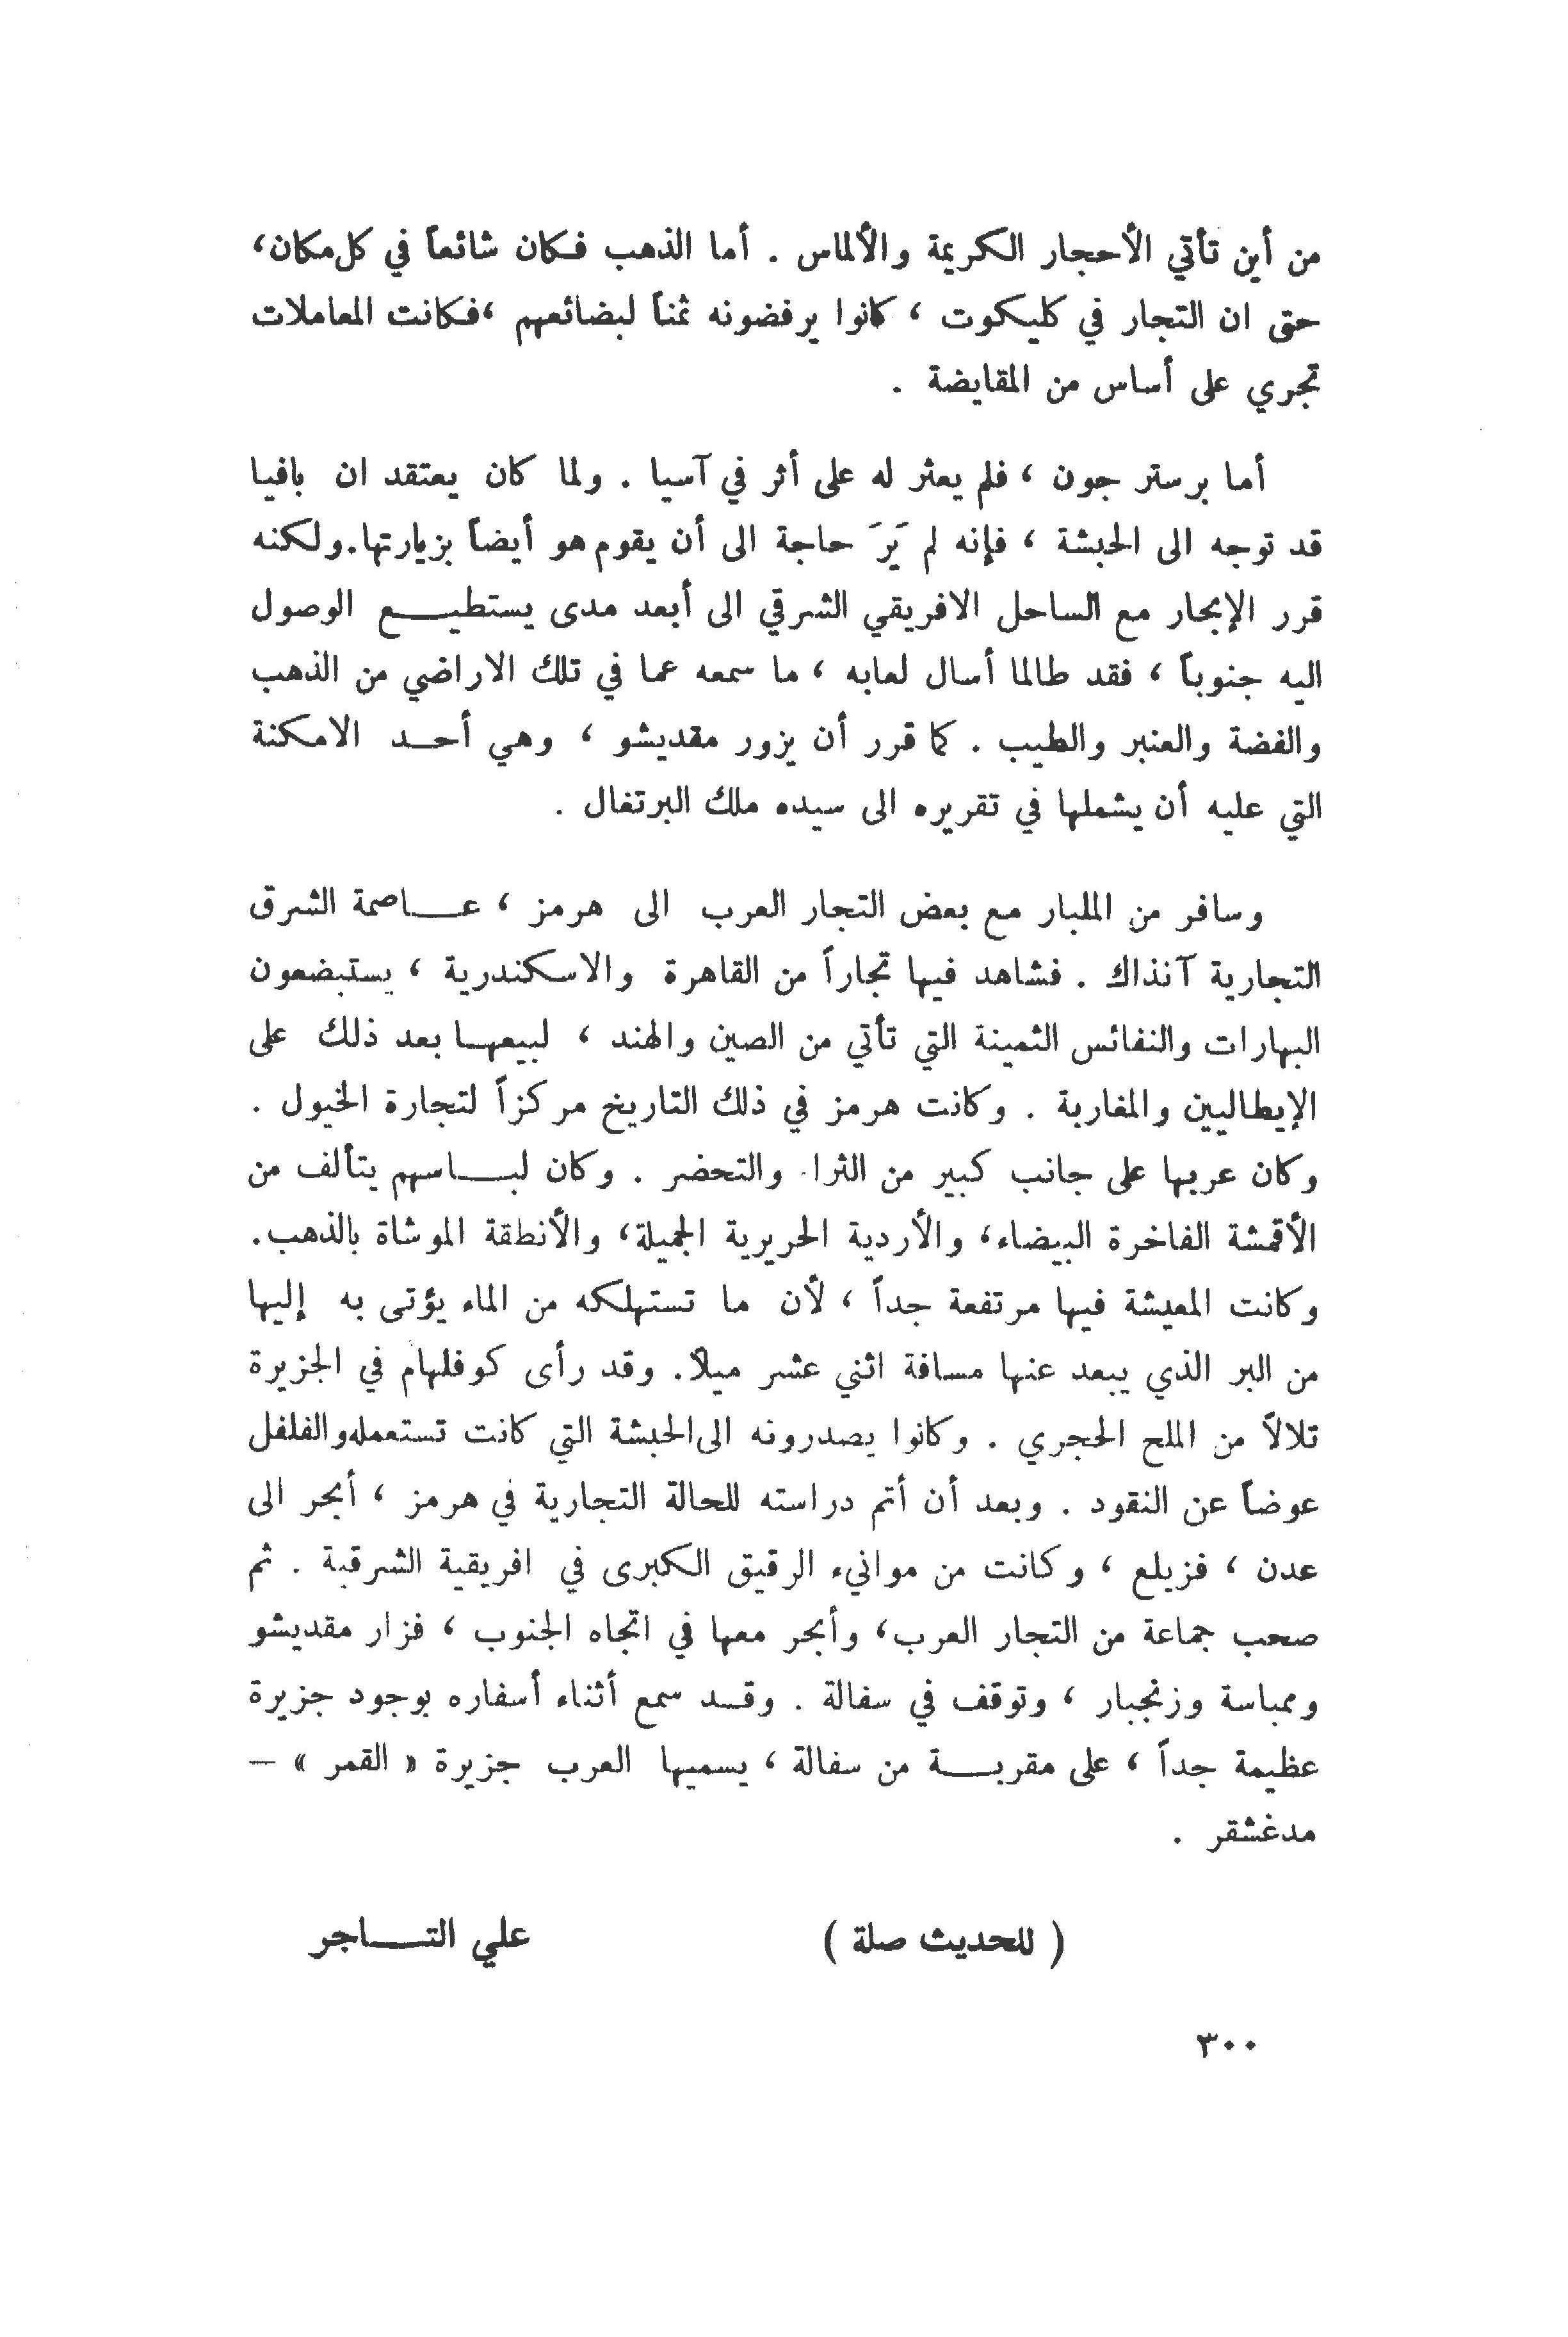 من أين تأتي الأحجار الكريمة والألماس . أما الذهب فكان شائعاً في كل مكان،
حتى ان التجار في كليكوت ، كانوا يرفضونه ثمناً لبضائعهم ،فكانت المعاملات
تجري على أساس من المقايضة .
أما برستر جون ، فلم يعثر له على أثر في آسيا . ولما كان يعتقد ان بافيا
قد توجه الى الحبشة ، فإنه لم يَرَ حاجة الى أن يقوم هو أيضاً بزيارتها.ولكنه
قرر الإبحار مع الساحل الافريقي الشرقي الى أبعد مدى يستطيع الوصول
اليه جنوباً ، فقد طالما أسال لعابه ، ما سمعه عما في تلك الاراضي من الذهب
والفضة والعنبر والطيب . كما قرر أن يزور مقديشو ، وهي أحد الامكنة
التي عليه أن يشملها في تقريره الى سيده ملك البرتغال .
وسافر من الملبار مع بعض التجار العرب الى هرمز ، عاصمة الشرق
التجارية آنذاك . فشاهد فيها تجاراً من القاهرة والاسكندرية ، يستبضعون
البهارات والنفائس الثمينة التي تأتي من الصين والهند ، لبيعها بعد ذلك على
الإيطاليين والمغاربة . وكانت هرمز في ذلك التاريخ مركزاً لتجارة الخيول .
وكان عربها على جانب كبير من الثراء والتحضر . وكان لباسهم يتألف من
الأقمشة الفاخرة البيضاء، والأردية الحريرية الجميلة، والأنطقة الموشاة بالذهب.
وكانت المعيشة فيها مرتفعة جداً ، لأن ما تستهلكه من الماء يؤتى به إليها
من البر الذي يبعد عنها مسافة اثني عشر ميلاً. وقد رأى كوفلهام في الجزيرة
تلالاً من الملح الحجري . وكانوا يصدرونه الى الحبشة التي كانت تستعمله والفلفل
عوضاً عن النقود . وبعد أن أتم دراسته للحالة التجارية في هرمز ، أبحر الى
عدن ، فزيلع ، وكانت من موانيء الرقيق الكبرى في افريقية الشرقية . ثم
صحب جماعة من التجار العرب، وأبحر معها في اتجاه الجنوب ، فزار مقديشو
وممباسة وزنجبار ، وتوقف في سفالة . وقد سمع أثناء أسفاره بوجود جزيرة
عظيمة جداً ، على مقربة من سفالة ، يسميها العرب جزيرة « القمر » –
مدغشقر .
( للحديث صلة ) علي التاجر
٣٠٠